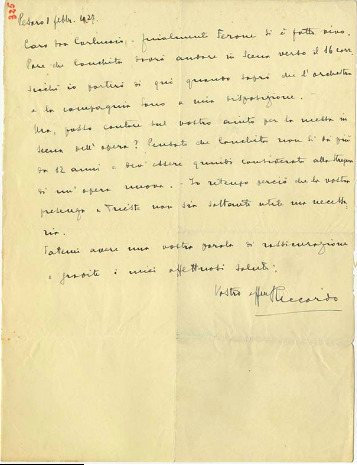 325
Pesaro 1 febbr. 1929.
Caro don Carlucio, finalmente Ferone si è fatto vivo.
Pare che Conchita dovrà andare in scena verso il 16 corr.
sicché io partirò di qui quando saprò che l'orchestra
e la compagnia sono a mia disposizione.
Ma, posso contare sul vostro aiuto per la messa in
scena dell'opera? Pensate che Conchita non si dà più
da 12 anni e dev'essere quindi considerata alla stregua
di un'opera nuova. - Io ritengo perciò che la vostra
presenza a Trieste non sia soltanto utile ma necessa-
ria.
Fatemi avere una vostra parola di rassicurazione
e gradite i miei affettuosi saluti.
Vostro aff. Riccardo